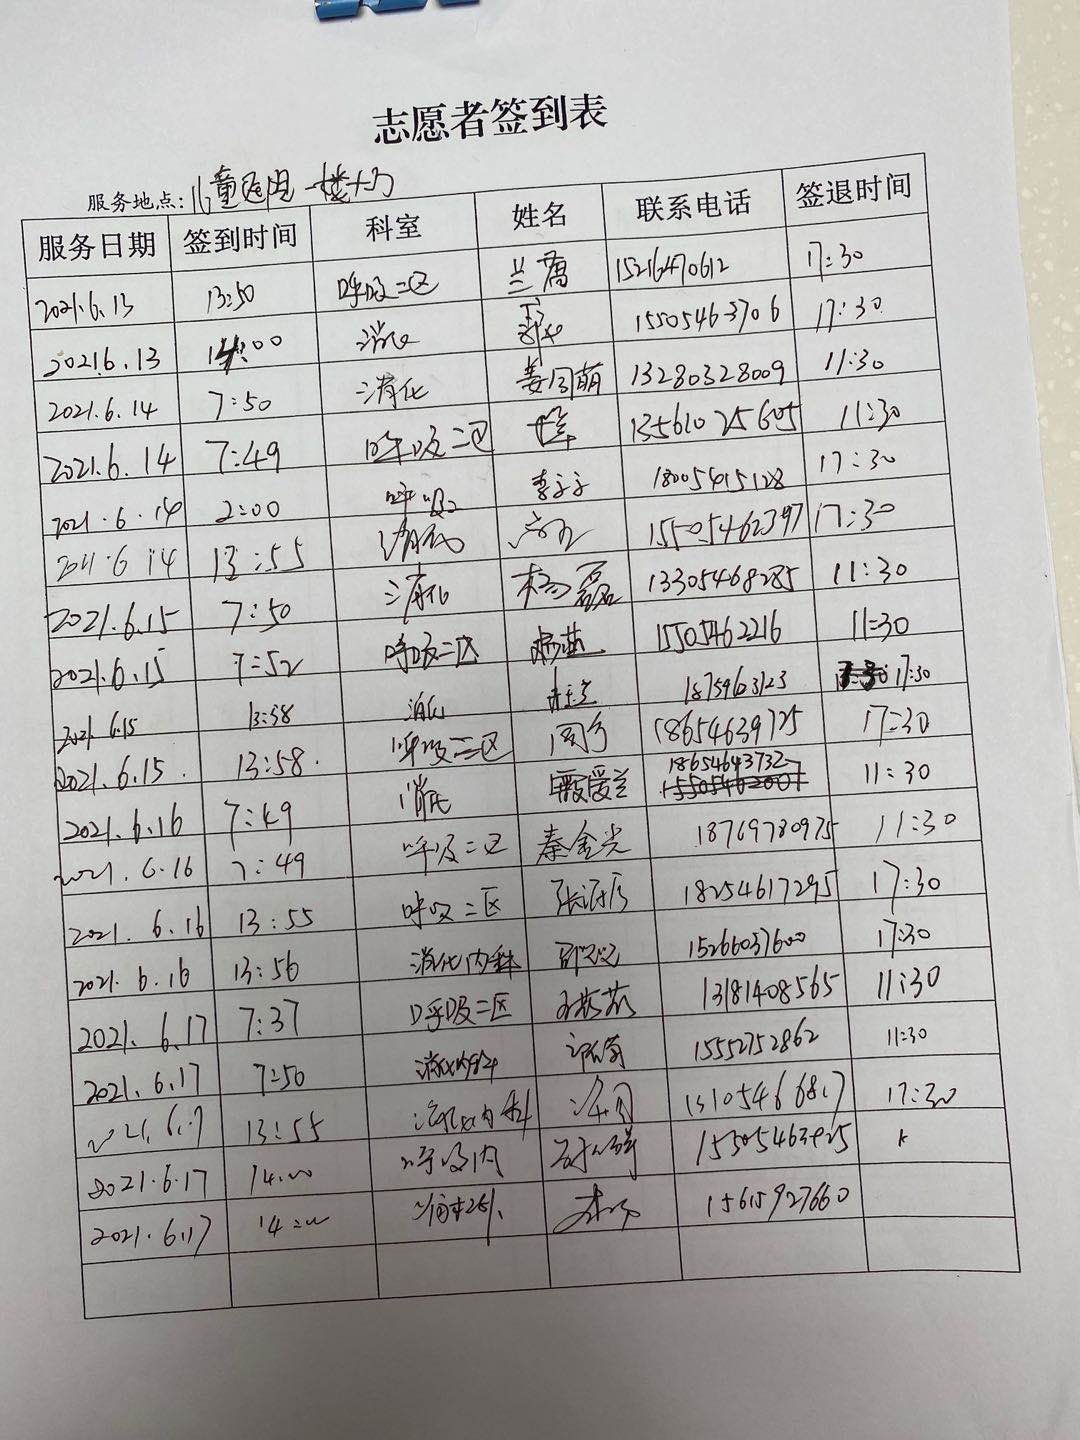 志愿者签到表
服务地点:儿童医院一楼大厅
服务日期 签到时间 科室 姓名 联系电话 签退时间
2021.6.13 13:50 呼吸二区 兰蕅 15216470612 17:30
2021.6.13 14:00 消化 15505463706 17:30
2021.6.14 7:50 消化 姜同萌 13280328009 11:30
2021.6.14 7:49 呼吸二区 13561025605 11:30
2021.6.14 2:00 呼吸 李子子 18005415128 17:30
2021.6.14 13:55 消化 15505462397 17:30
2021.6.15 7:50 消化 杨磊 13305468285 11:30
2021.6.15 7:52 呼吸二区 杨燕 15505462216 11:30
2021.6.15 13:58 消化 1875963123 17:30
2021.6.15. 13:58. 呼吸二区 18654639725 17:30
18654643732
2021.6.16 7:49 消化 爱兰 15505462007 11:30
2021.6.16 7:49 呼吸二区 秦金光 18769780975 11:30
2021.6.16 13:55 呼吸二区 18254617295 17:30
2021.6.16 13:56 消化内科 15266037600 17:30
2021.6.17 7:37 呼吸二区 13181408565 11:30
2021.6.17 7:50 消化内科 15552752862 11:30
13:55 消化内科 17:30
2021.6.17 14:00 呼吸内
2021.6.17 14:00 15615927660